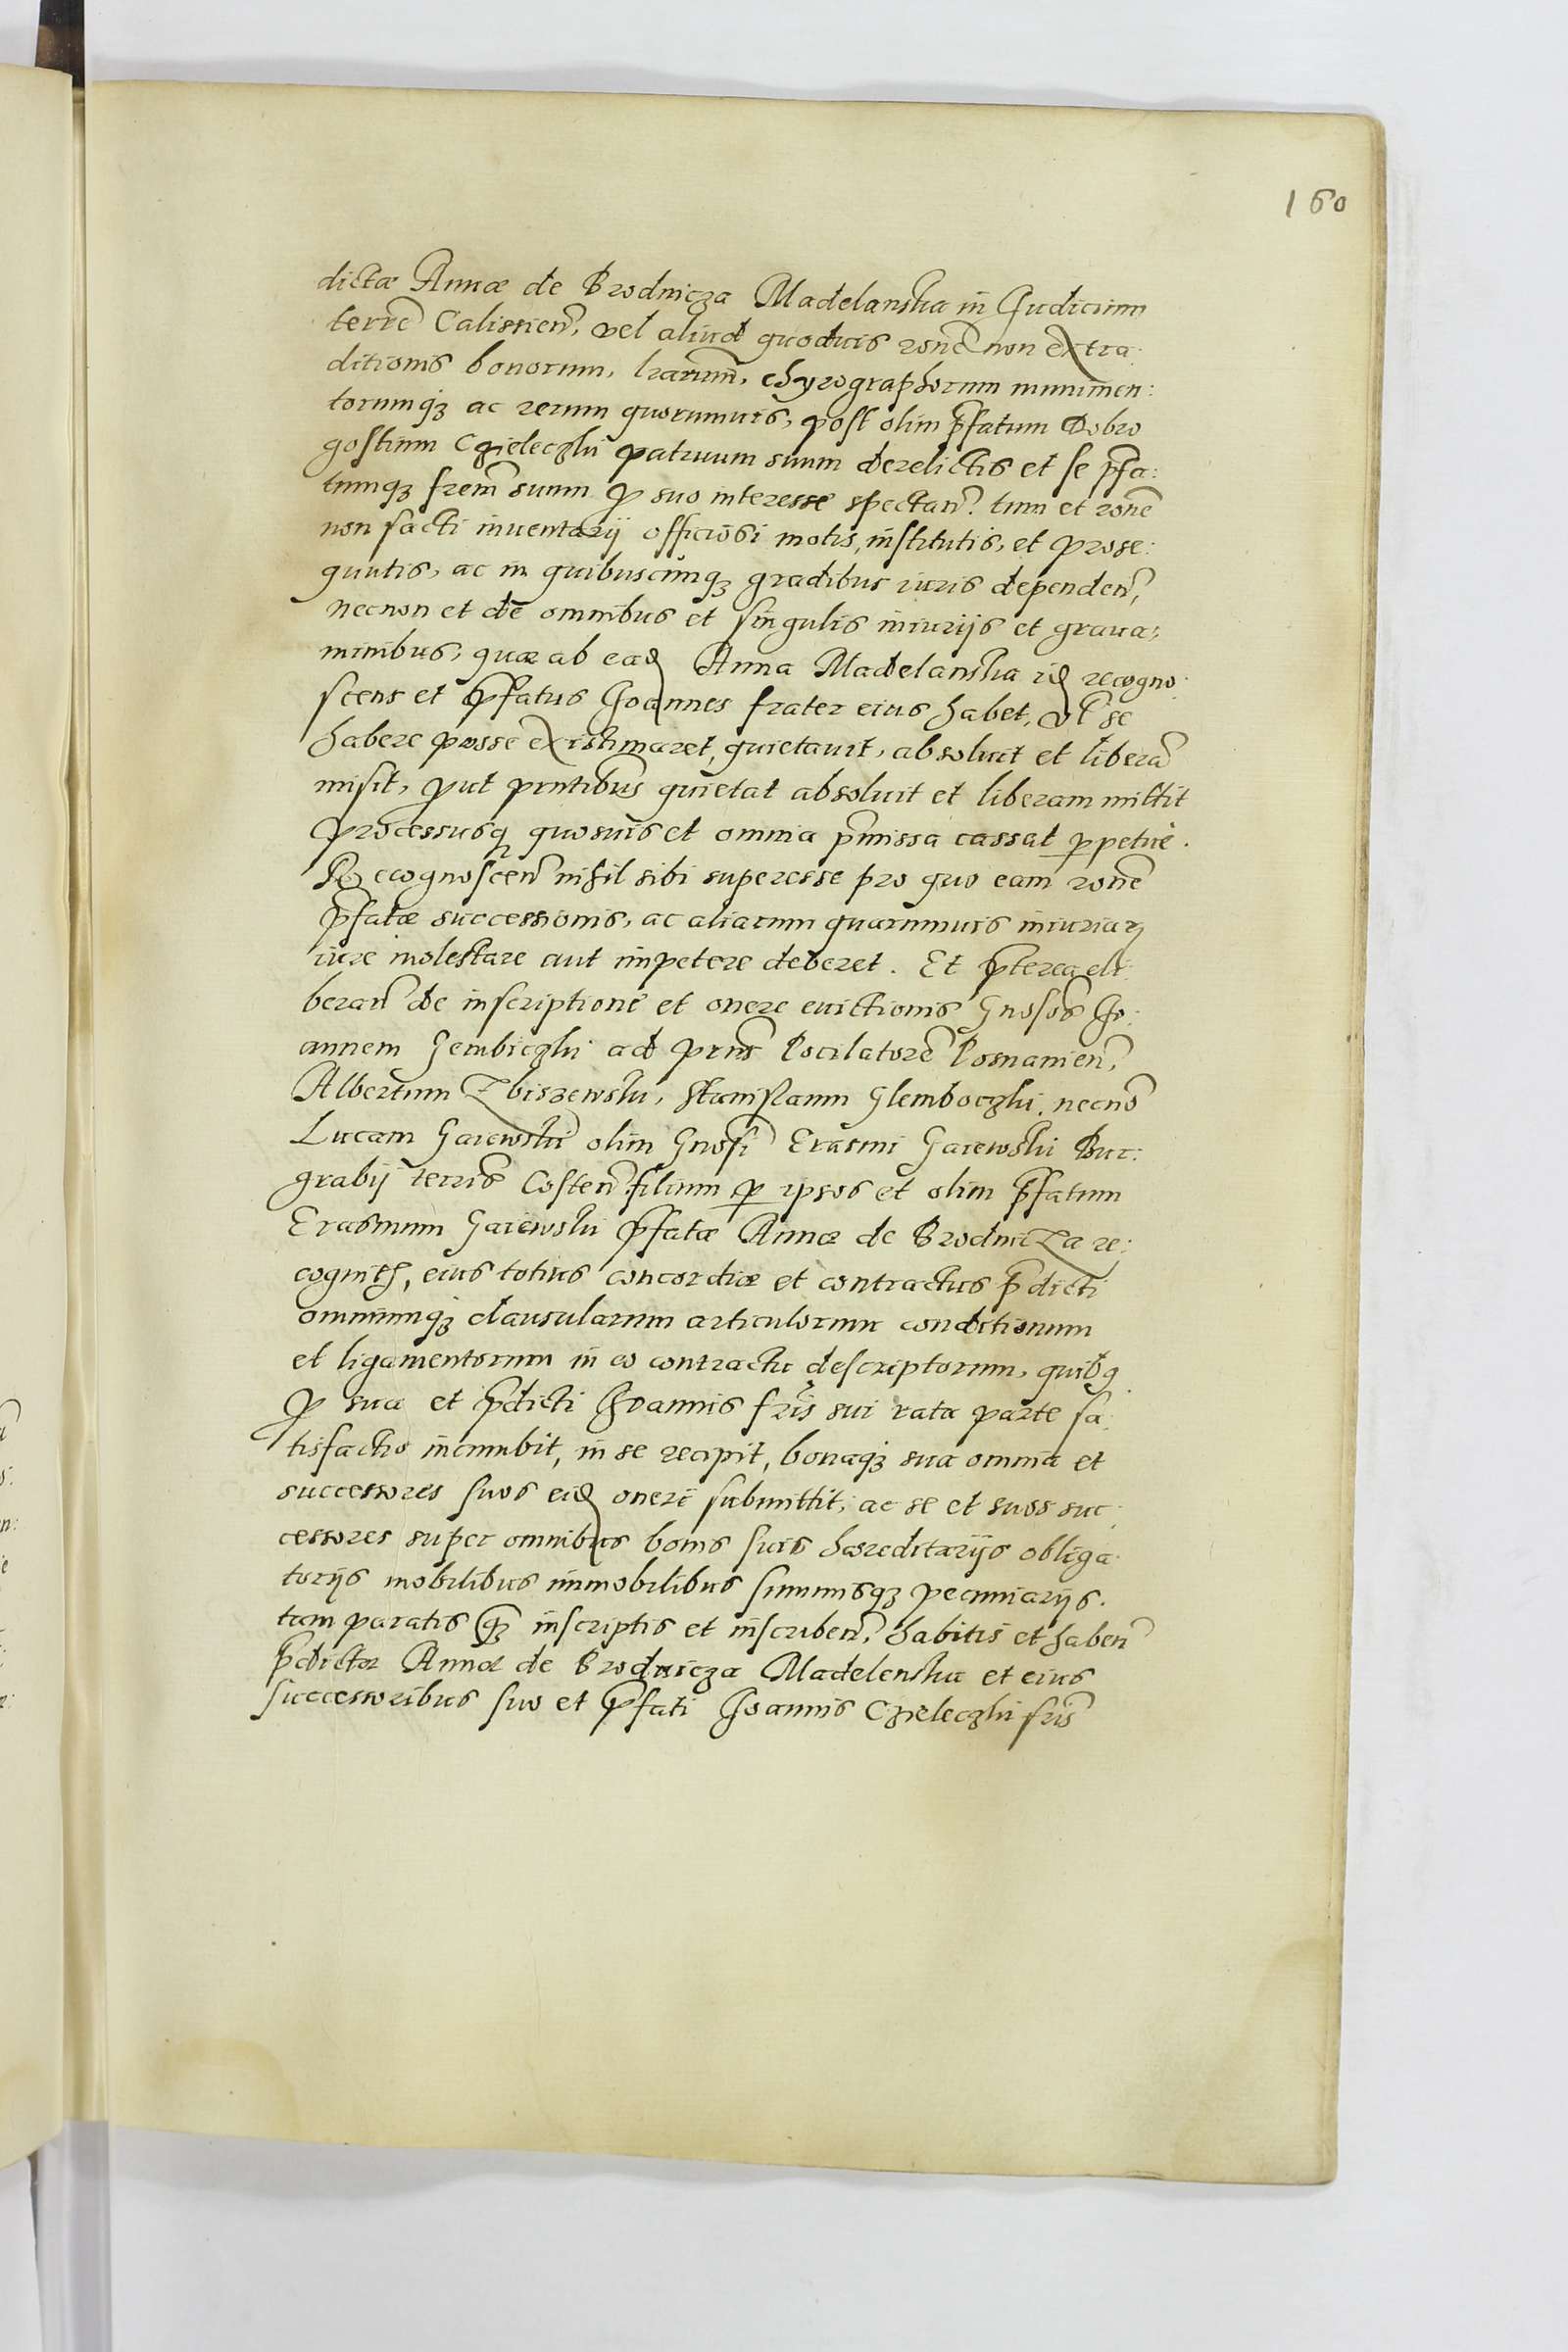 160
dictæ Annæ de Brodnicza Madelanska in Iudicium
terrē Calissien̄, vel aliud quoduis ronē non extra:
ditionis bonorum, lrarum̄, chyrographorum munimen:
torumqꝫ ac rerum quorumuis, post olim p̄fatum Dobro
gostium Czieleczki patruum suum derelictis et se p̄fa:
tumqꝫ frem̄ suum ꝓ suo interesse spectan̄. tum et ronē
non facti inuentarij officiosi motis, institutis, et prose:
quutis, ac in quibuscunqꝫ gradibus iuris dependen̄,
necnon et de omnibus et singulis iniurijs et graua:
minibus, quæ ab eađ Anna Madelanska iđ recogno:
scens et p̄fatus Ioannes frater eius habet, vl̄ se
habere posse existimaret, quietauit, absoluit et liberā
misit, ꝓut pn̄tibus quietat absoluit et liberam mittit
Processusqꝫ quosuis et omnia p̄missa cassat ꝑpetue.
Recognoscen̄ nihil sibi superesse pro quo eam ronē
p̄fatæ successionis, ac aliarum quarumuis iniuriaꝝ
iure molestare aut impetere deberet. Et p̄terea eli:
beran̄ de inscriptione et onere euictionis Gnosos̄ Io:
annem Gembiczki ad prn̄s Pocilatorē Posnanien̄,
Albertum Zbiszewski, Stanislaum Glemboczki, necnō
Lucam Gaiewski olim Gnosi̅ Erasmi Gaiewski Bur:
grabij terris̄ Costen̄ filium ꝑ ipsos et olim p̄fatum
Erasmum Gaiewski p̄fatæ Annæ de Brodnicza re:
cognit, eius totius concordiæ et contractus p̄dicti
omniumqꝫ clausularum articulorum conditionum
et ligamentorum in eo contractu descriptorum, quibꝰ
ꝓ sua et p̄dicti Ioannis fris̄ sui rata parte sa:
tisfactio incumbit, in se recipit, bonaqꝫ sua omnia et
successores suos eiđ oneri submittit, ac se et suos suc:
cessores super omnibus bonis suis hæreditarijs obliga:
torijs mobilibus immobilibus summisqꝫ pecuniarijs.
tam paratis qꝫ inscriptis et inscriben̄, habitis et haben̄
p̄dictæ Annæ de Brodnicza Madelenska et eius
successoribus suo et p̄fati Ioannis Czieleczki fris̄